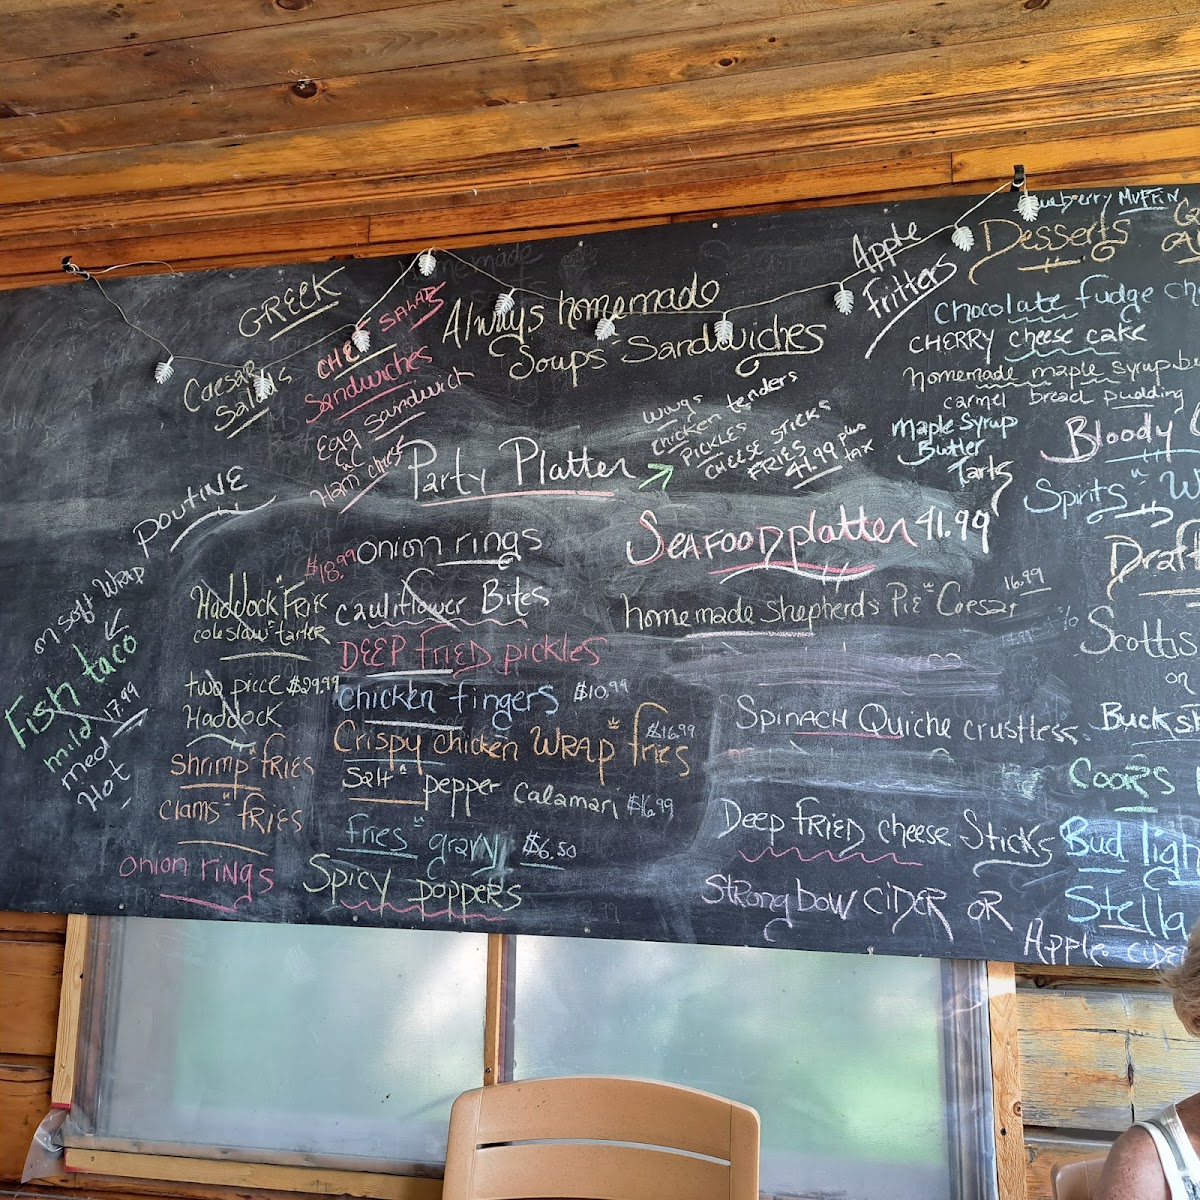 GREEK
Caesar
Salads
CHEF SALADS
Sandwiches
Egg Sandwich
Ham "n" cheese
Always homemade
Soups Sandwiches
Apple
Fritters
Party Platter →
wings
chicken tenders
PICKLES
CHEESE STICKS
FRIES
41.99 plus
tax
POUTINE
on soft WRAP
Fish taco
mild 17.99
med
Hot
Haddock "n" Fries
coleslaw "n" tarter
$18.99
two piece $29.99
Haddock
Shrimp "n" FRIES
Clams "n" FRIES
onion rings
onion rings
cauliflower Bites
DEEP FRIED pickles
chicken fingers $10.99
Crispy chicken WRAP "n" fries $16.99
Salt "n" pepper calamari $16.99
fries "n" gravy $6.50
Spicy poppers
SEAFOOD platter 41.99
homemade shepherds PiE "n" Caesar 16.99
SPINACH Quiche crustless
Deep FRIED cheese Sticks
Strongbow CIDER OR
Apple cide
Blueberry MUFFIN
Desserts
chocolate fudge ch
CHERRY cheese cake
homemade maple syrup b
carmel bread pudding
Maple Syrup
Butter
Tarts
Bloody
Spirits "n" W
Draf
Scottis
on
Bucks
COORS
Bud ligh
Stella